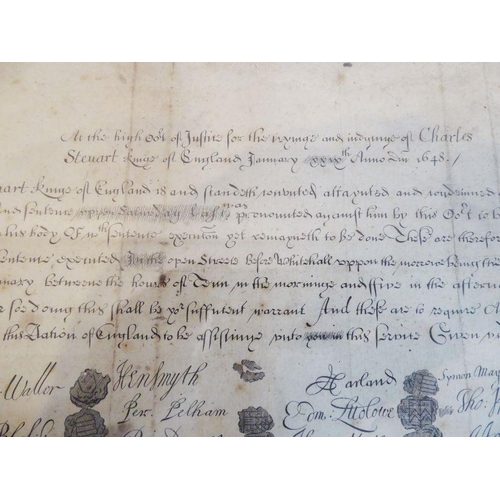 At the high Cort of Justice for the tryinge and iudginge of Charles
Steuart kinge of England January xxixth Anno Dni 1648./
uart kinge of England is and standeth convicted attaynted and condemned
and sentence uppon Saturday last was pronounced against him by this Cort to be
his body Of wch sentence execucon yet remayneth to be done These are therefore
sentence executed In the open Streete before Whitehall uppon the morrowe being the
nuary betweene the houres of Tenn in the morninge and five in the aftern
r soe doing this shall be yor sufficient warrant And these are to require
this Nation of England to be assistinge unto you in this service Given
Waller Hen Smyth Harland Symon May
Per. Pelham Edm: Ludlowe Tho: